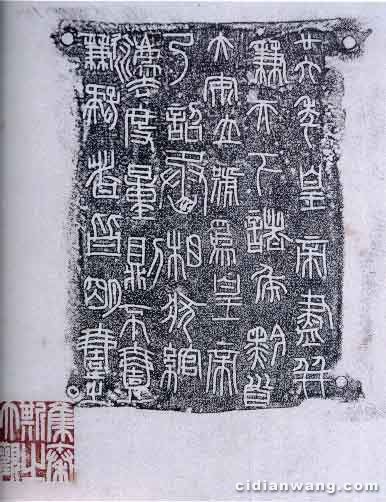 廿六年皇帝盡并
兼天下諸侯黔首
大安立號為皇帝
乃詔丞相狀綰
灋度量則不壹
歉疑者皆明壹之
cidianwang.com